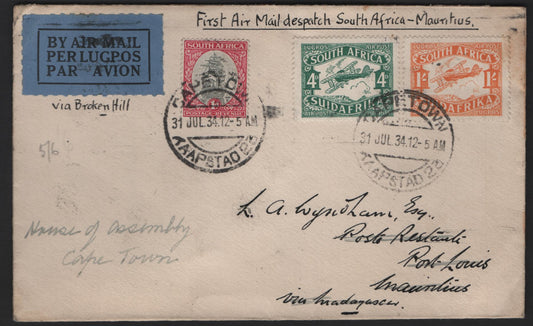 First Air Mail despatch South Africa - Mauritius.
BY AIR MAIL
PER LUGPOS
PAR AVION
via Broken Hill
SOUTH AFRICA
POSTAGE REVENUE
LUGPOS
SOUTH AFRICA
4d 4d
SUIDAFRIKA
SOUTH AFRICA
1/- 1/-
SUIDAFRIKA
CAPETOWN
31 JUL.34.12-5 AM
KAAPSTAD 23
CAPETOWN
31 JUL.34.12-5 AM
KAAPSTAD 23
5/6
L. A. Wyndham, Esq.,
House of Assembly
Cape Town
Poste Restante
Port Louis
Mauritius
via Madagascar.